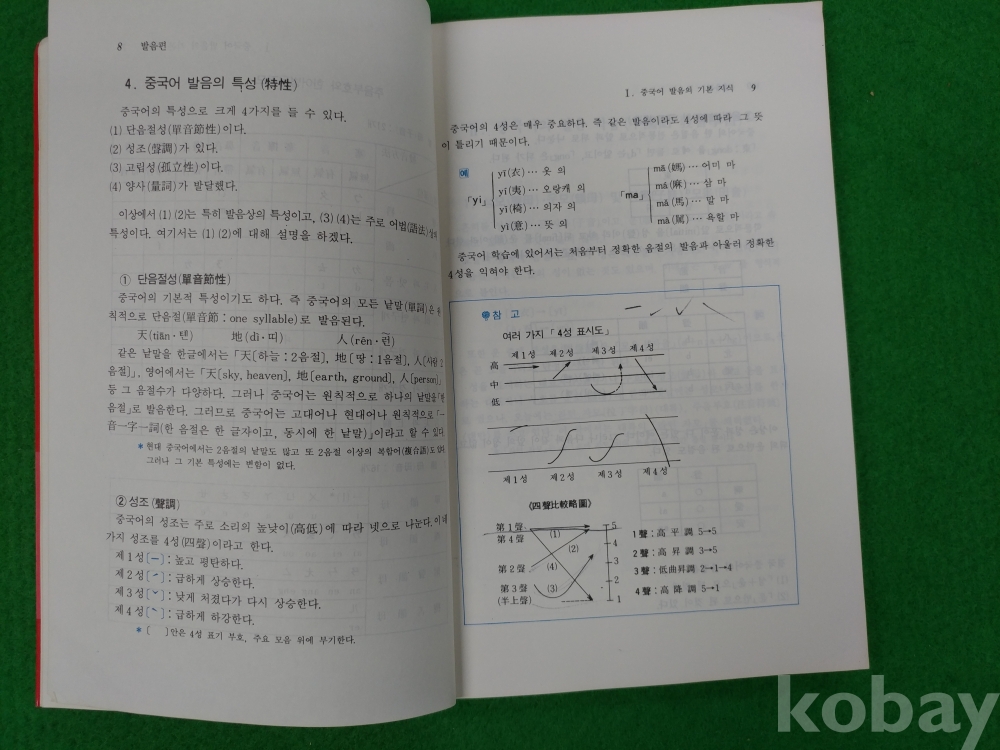 8 발음편
4. 중국어 발음의 특성(特性)
중국어의 특성으로 크게 4가지를 들 수 있다.
(1) 단음절성(單音節性)이다.
(2) 성조(聲調)가 있다.
(3) 고립성(孤立性)이다.
(4) 양사(量詞)가 발달했다.
이상에서 (1) (2)는 특히 발음상의 특성이고, (3) (4)는 주로 어법(語法)상의
특성이다. 여기서는 (1) (2)에 대해 설명을 하겠다.
① 단음절성(單音節性)
중국어의 기본적 특성이기도 하다. 즉 중국어의 모든 낱말(單詞)은 원
칙적으로 단음절(單音節 : one syllable)로 발음된다.
天(tiān · 톈) 地(dì · 띠) 人(rén · 런)
같은 낱말을 한글에서는 「天[하늘 : 2음절], 地[땅 : 1음절], 人[사람 : 2
음절]」, 영어에서는 「天[sky, heaven], 地[earth, ground], 人[person]」
등 그 음절수가 다양하다. 그러나 중국어는 원칙적으로 하나의 낱말을 「한
음절」로 발음한다. 그러므로 중국어는 고대어나 현대어나 원칙적으로 「一
音一字一詞(한 음절은 한 글자이고, 동시에 한 낱말)」이라고 할 수 있다.
* 현대 중국어에서는 2음절의 낱말도 많고 또 2음절 이상의 복합어(複合語)도 있다.
그러나 그 기본 특성에는 변함이 없다.
② 성조(聲調)
중국어의 성조는 주로 소리의 높낮이(高低)에 따라 넷으로 나눈다. 이 네
가지 성조를 4성(四聲)이라고 한다.
제1성[ˉ] : 높고 평탄하다.
제2성[ˊ] : 급하게 상승한다.
제3성[ˇ] : 낮게 처졌다가 다시 상승한다.
제4성[ˋ] : 급하게 하강한다.
* [ ]안은 4성 표기 부호, 주요 모음 위에 부기한다.
Ⅰ. 중국어 발음의 기본 지식 9
중국어의 4성은 매우 중요하다. 즉 같은 발음이라도 4성에 따라 그 뜻
이 틀리기 때문이다.
예
「yi」
yī(衣)… 옷 의
yí(夷)… 오랑캐 의
yǐ(椅)… 의자 의
yì(意)… 뜻 의
「ma」
mā(媽)… 어미 마
má(麻)… 삼 마
mǎ(馬)… 말 마
mà(罵)… 욕할 마
중국어 학습에 있어서는 처음부터 정확한 음절의 발음과 아울러 정확한
4성을 익혀야 한다.
참 고
여러 가지 「4성 표시도」
제1성 제2성 제3성 제4성
高
中
低
제1성 제2성 제3성 제4성
《四聲比較略圖》
第1聲
第4聲
第2聲
第3聲
(半上聲)
(1)
(2)
(4)
(3)
5
4
3
2
1
1聲 : 高 平 調 5→5
2聲 : 高 昇 調 3→5
3聲 : 低曲昇調 2→1→4
4聲 : 高 降 調 5→1
kobay